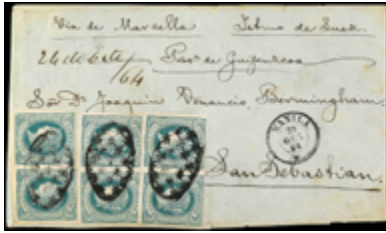 Via de Marsella Istmo de Suez.
24 de Oct.e /64 Par de Guipuzcoa
Sõr Dn Joaquin Venancio Bermingham
MANILA
San Sebastian.